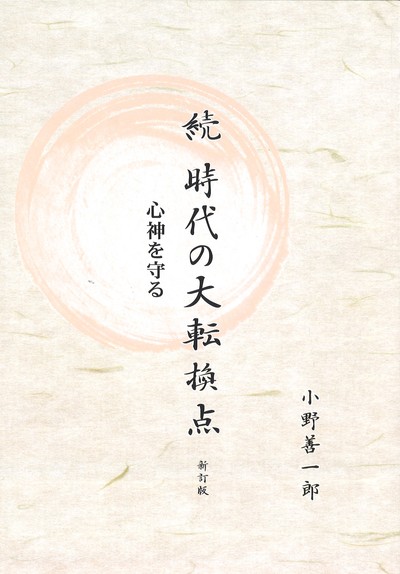 続 時代の大転換点
心神を守る
新訂版
小野善一郎